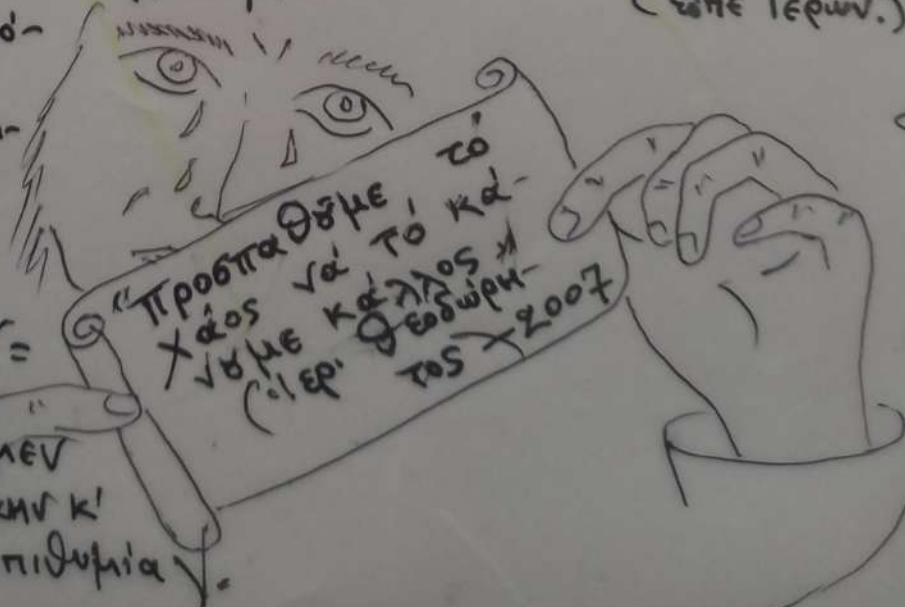 (εἶπε Ἱερών.)
ό-
"Προσπαθȣ̃με τό
χάος νά τό κά-
νȣμε κάλλος"
(Ἱερ. Θεοδώρη-
τος +2007
=
λεν
κην κ'
πιθυμία